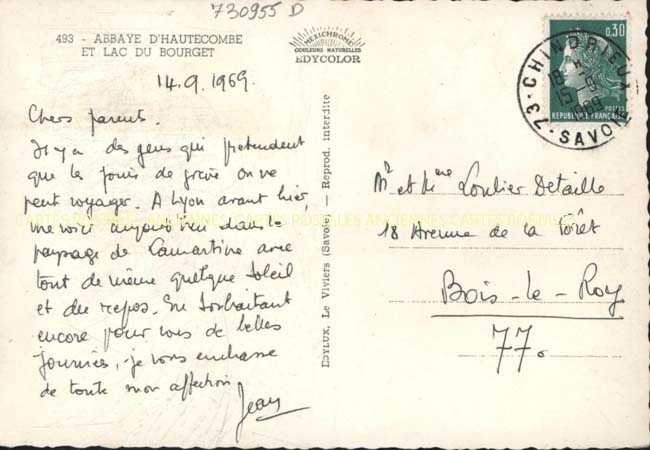 730955 D
493 - ABBAYE D'HAUTECOMBE
ET LAC DU BOURGET
MEXICHROME
COULEURS NATURELLES
EDYCOLOR
14.9.1969.
Chers parents.
Il y a des gens qui pretendent
que les jours de grève on ne
peut voyager. A Lyon avant hier,
me voici aujourd'hui dans le
paysage de Lamartine avec
tout de même quelque soleil
et du repos. En souhaitant
encore pour vous de belles
journées, je vous embrasse
de toute mon affection
Jean
EDYLUX, Le Viviers (Savoie) — Reprod. interdite
0,30
POSTES
REPUBLIQUE FRANÇAISE
73 · CHINDRIEUX
18 H
15 - 9
1969
SAVOIE
Mr et Mme Loulier Detaille
18 Avenue de la Forêt
Bois-le-Roy
77.
CARTES POSTALES ANCIENNES CARTES POSTALES ANCIENNES CARTES POSTALES